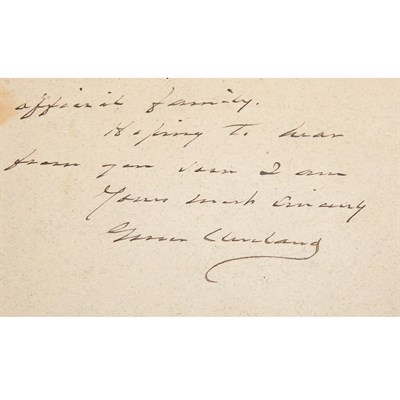 official family.
Hoping to hear
from you soon I am
Yours very sincerely
Grover Cleveland